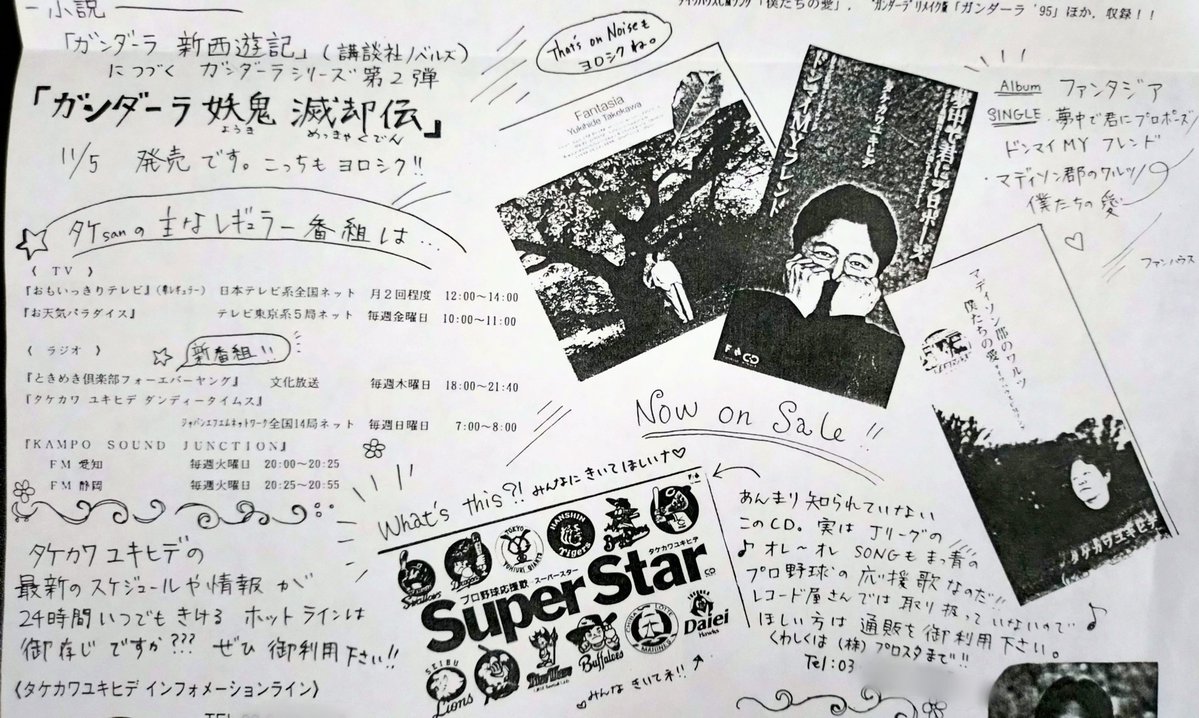 小説
「ガンダーラ 新西遊記」(講談社ノベルズ)
につづく ガンダーラシリーズ第2弾
「ガンダーラ妖鬼滅却伝」
ようき めっきゃくでん
11/5 発売です。こっちもヨロシク!!
タケsanの主なレギュラー番組は…
〈 TV 〉
『おもいっきりテレビ』(準レギュラー) 日本テレビ系全国ネット 月2回程度 12:00~14:00
『お天気パラダイス』 テレビ東京系5局ネット 毎週金曜日 10:00~11:00
〈 ラジオ 〉
新番組!!
『ときめき倶楽部フォーエバーヤング』 文化放送 毎週木曜日 18:00~21:40
『タケカワ ユキヒデ ダンディータイムス』
ジャパンエフエムネットワーク全国14局ネット 毎週日曜日 7:00~8:00
『KAMPO SOUND JUNCTION』
FM愛知 毎週火曜日 20:00~20:25
FM静岡 毎週火曜日 20:25~20:55
タケカワ ユキヒデの
最新のスケジュールや情報が
24時間いつでもきける ホットラインは
御存じですか??? ぜひ御利用下さい!!
《タケカワユキヒデ インフォメーションライン》
「僕たちの愛」, "ガンダーラ"リメイク版「ガンダーラ '95」ほか, 収録!!
That's on Noiseも
ヨロシクね。
Fantasia
Yukihide Takekawa
ドンマイMYフレンド
夢中で君にプロポーズ
CD
Album ファンタジア
SINGLE 夢中で君にプロポーズ/
ドンマイMYフレンド
・マディソン郡のワルツ/
僕たちの愛
ファンハウス
マディソン郡のワルツ
僕たちの愛
タケカワユキヒデ
Now on Sale!!
What's this?! みんなにきいてほしいナ♡
Swallows
Dragons
TOKYO YOMIURI GIANTS
HANSHIN Tigers
タケカワユキヒデ
プロ野球応援歌・スーパースター
Super Star
CD
SEIBU Lions
BlueWave
Buffaloes
CHIBA LOTTE MARINES
Daiei Hawks
♡みんなきいてネ!!
あんまり知られていない
このCD。実はJリーグの
♪オレ~オレ SONGもまっ青の
プロ野球の応援歌なのだ!!
レコード屋さんでは取り扱っていないので
ほしい方は通販を御利用下さい。
くわしくは(株)プロスタまで!!
Tel:03